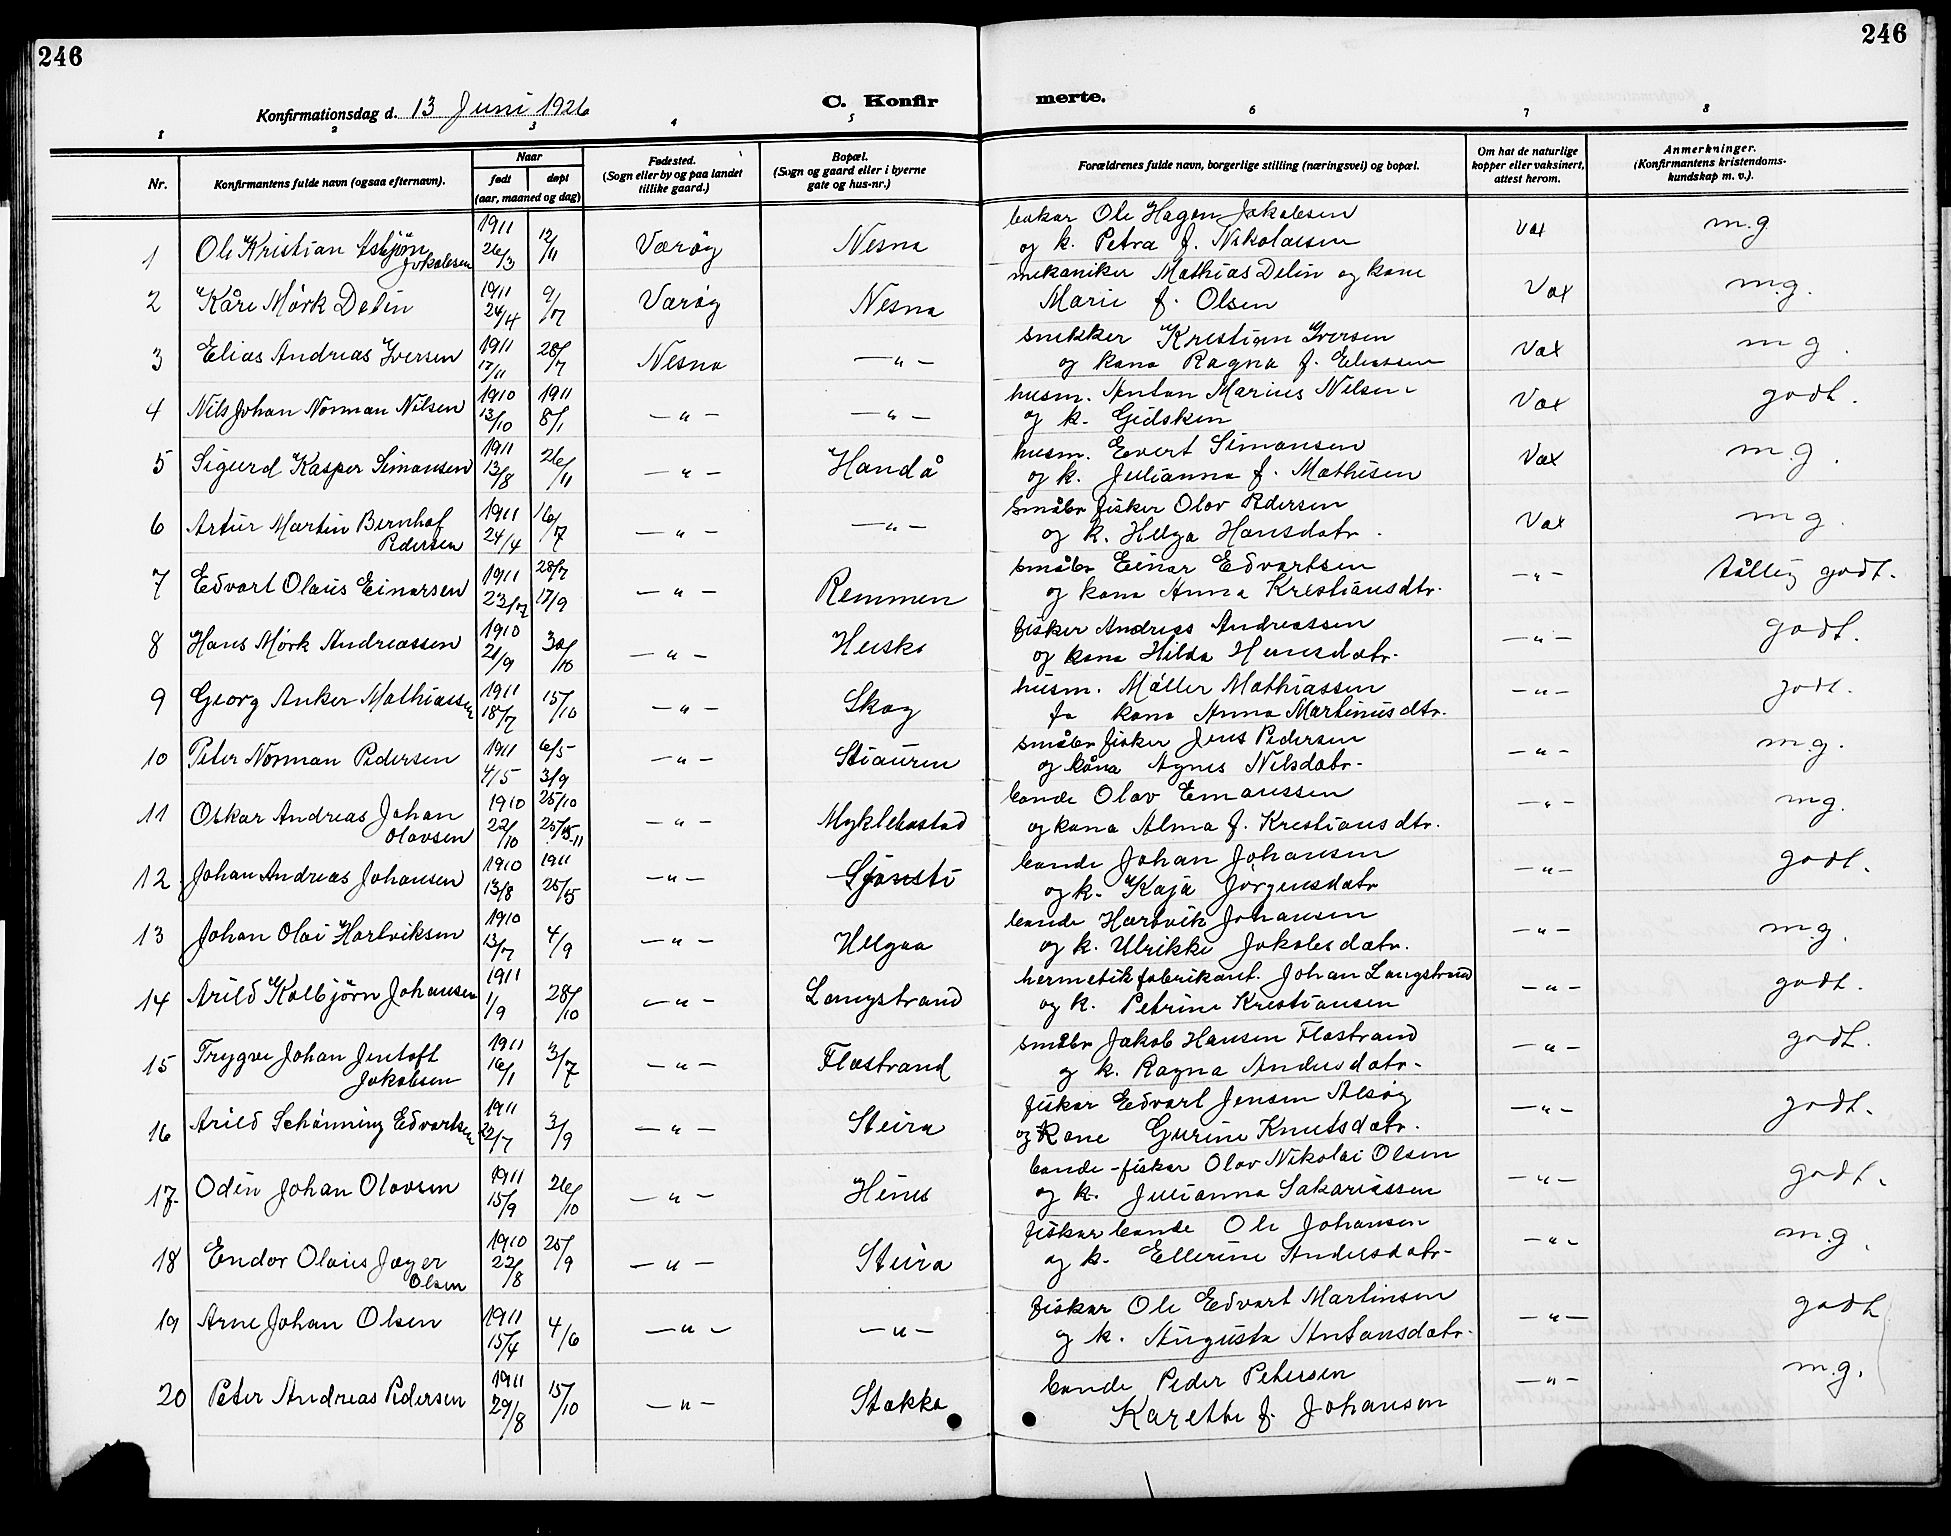 246
246
Konfirmationsdag d. 13 Juni 1926
C. Konfir
merte.
1 2 3 4 5 6 7 8
Nr.
Konfirmantens fulde navn (ogsaa efternavn).
Naar
født
døpt
(aar, maaned og dag)
Fødested.
(Sogn eller by og paa landet
tillike gaard.)
Bopæl.
(Sogn og gaard eller i byerne
gate og hus-nr.)
Forældrenes fulde navn, borgerlige stilling (næringsvei) og bopæl.
Om hat de naturlige
kopper eller vaksinert,
attest herom.
Anmerkninger.
(Konfirmantens kristendoms-
kundskap m. v.).
1 Ole Kristian Asbjørn Jakobsen 1911 26/3 12/11 Værøy Nesna bakar Ole Hagen Jakobsen vax m.g
og k. Petra f. Nikolaisen
2 Kåre Mörk Delin 1911 24/4 9/7 Værøy Nesna mekaniker Mathias Delin og kone Vax m.g.
Marie f. Olsen
3 Elias Andreas Iversen 1911 17/11 28/7 Nesna —"— snekker Kristian Iversen Vax m g.
og kona Ragna f. Eliassen
4 Nils Johan Norman Nilsen 1910 13/10 1911 8/1 —"— —"— husm. Anton Marius Nilsen Vax godt.
og k. Gidsken
5 Sigurd Kasper Simonsen 1911 13/8 26/11 —"— Handå husm. Evert Simonsen Vax m.g.
og k. Julianna f. Mathisen
6 Artur Martin Bernhof Pedersen 1911 24/4 16/7 —"— —"— småbr fisker Olov Pedersen Vax m g.
og k. Helga Hansdatr.
7 Edvart Olaus Einarsen 1911 23/7 28/7 17/9 —"— Remmen småbr Einar Edvartsen —"— tållig godt.
og kona Anna Kristiansdtr.
8 Hans Mörk Andreassen 1910 21/9 30/10 —"— Huske fisker Andreas Andreassen —"— godt.
og kona Hilda Hansdatr.
9 Georg Anker Mathiassen 1911 18/7 15/10 —"— Skog husm. Möller Mathiassen —"— godt.
fo kona Anna Martinusdtr.
10 Peter Norman Pedersen 1911 4/5 6/5 3/9 —"— Stiauren småbr fisker Jens Pedersen —"— m.g.
og kona Agnes Nilsdatr.
11 Oskar Andreas Johan Olovsen 1910 22/10 25/10 —"— Myklebostad bonde Olav Emaussen —"— mg.
og kona Alma f. Kristiansdtr.
12 Johan Andreas Johansen 1910 13/8 1911 25/5 —"— Sjonsti bonde Johan Johansen —"— godt.
og k. Kaja Jörgensdatr
13 Johan Olai Hartviksen 1910 13/7 4/9 —"— Helgaa bonde Hartvik Johansen —"— m.g.
og k. Ulrikke Jakobsdatr.
14 Arild Kolbjörn Johansen 1911 1/9 28/10 —"— Langstrand hermetikfabrikant. Johan Langstrand —"— godt.
og k. Petrine Kristiansen
15 Trygve Johan Jentoft Jakobsen 1911 16/1 3/7 —"— Flostrand småbr Jakob Hansen Flostrand —"— godt.
og k. Ragna Andersdatr.
16 Arild Schönning Edvartsen 1911 22/7 3/9 —"— Steira fiskar Edvart Jensen Alsøy —"— godt.
og kone Gurine Knutsdatr.
17. Odin Johan Olovsen 1911 15/9 26/10 —"— Hines bonde-fiskar Olov Nikolai Olsen —"— godt.
og k. Julianna Sakariassen
18 Endor Olaus Jæger Olsen 1910 22/8 25/9 —"— Steira fiskarbonde Ole Johansen —"— m.g.
og k. Ellerine Andersdatr.
19 Arne Johan Olsen 1911 15/4 4/6 —"— —"— fiskar Ole Edvart Martinsen —"— godt
og k. Augusta Antonsdatr.
20 Peter Andreas Pedersen 1911 29/8 15/10 —"— Stokka bonde Peder Petersen —"— m.g.
Karethe f. Johanson